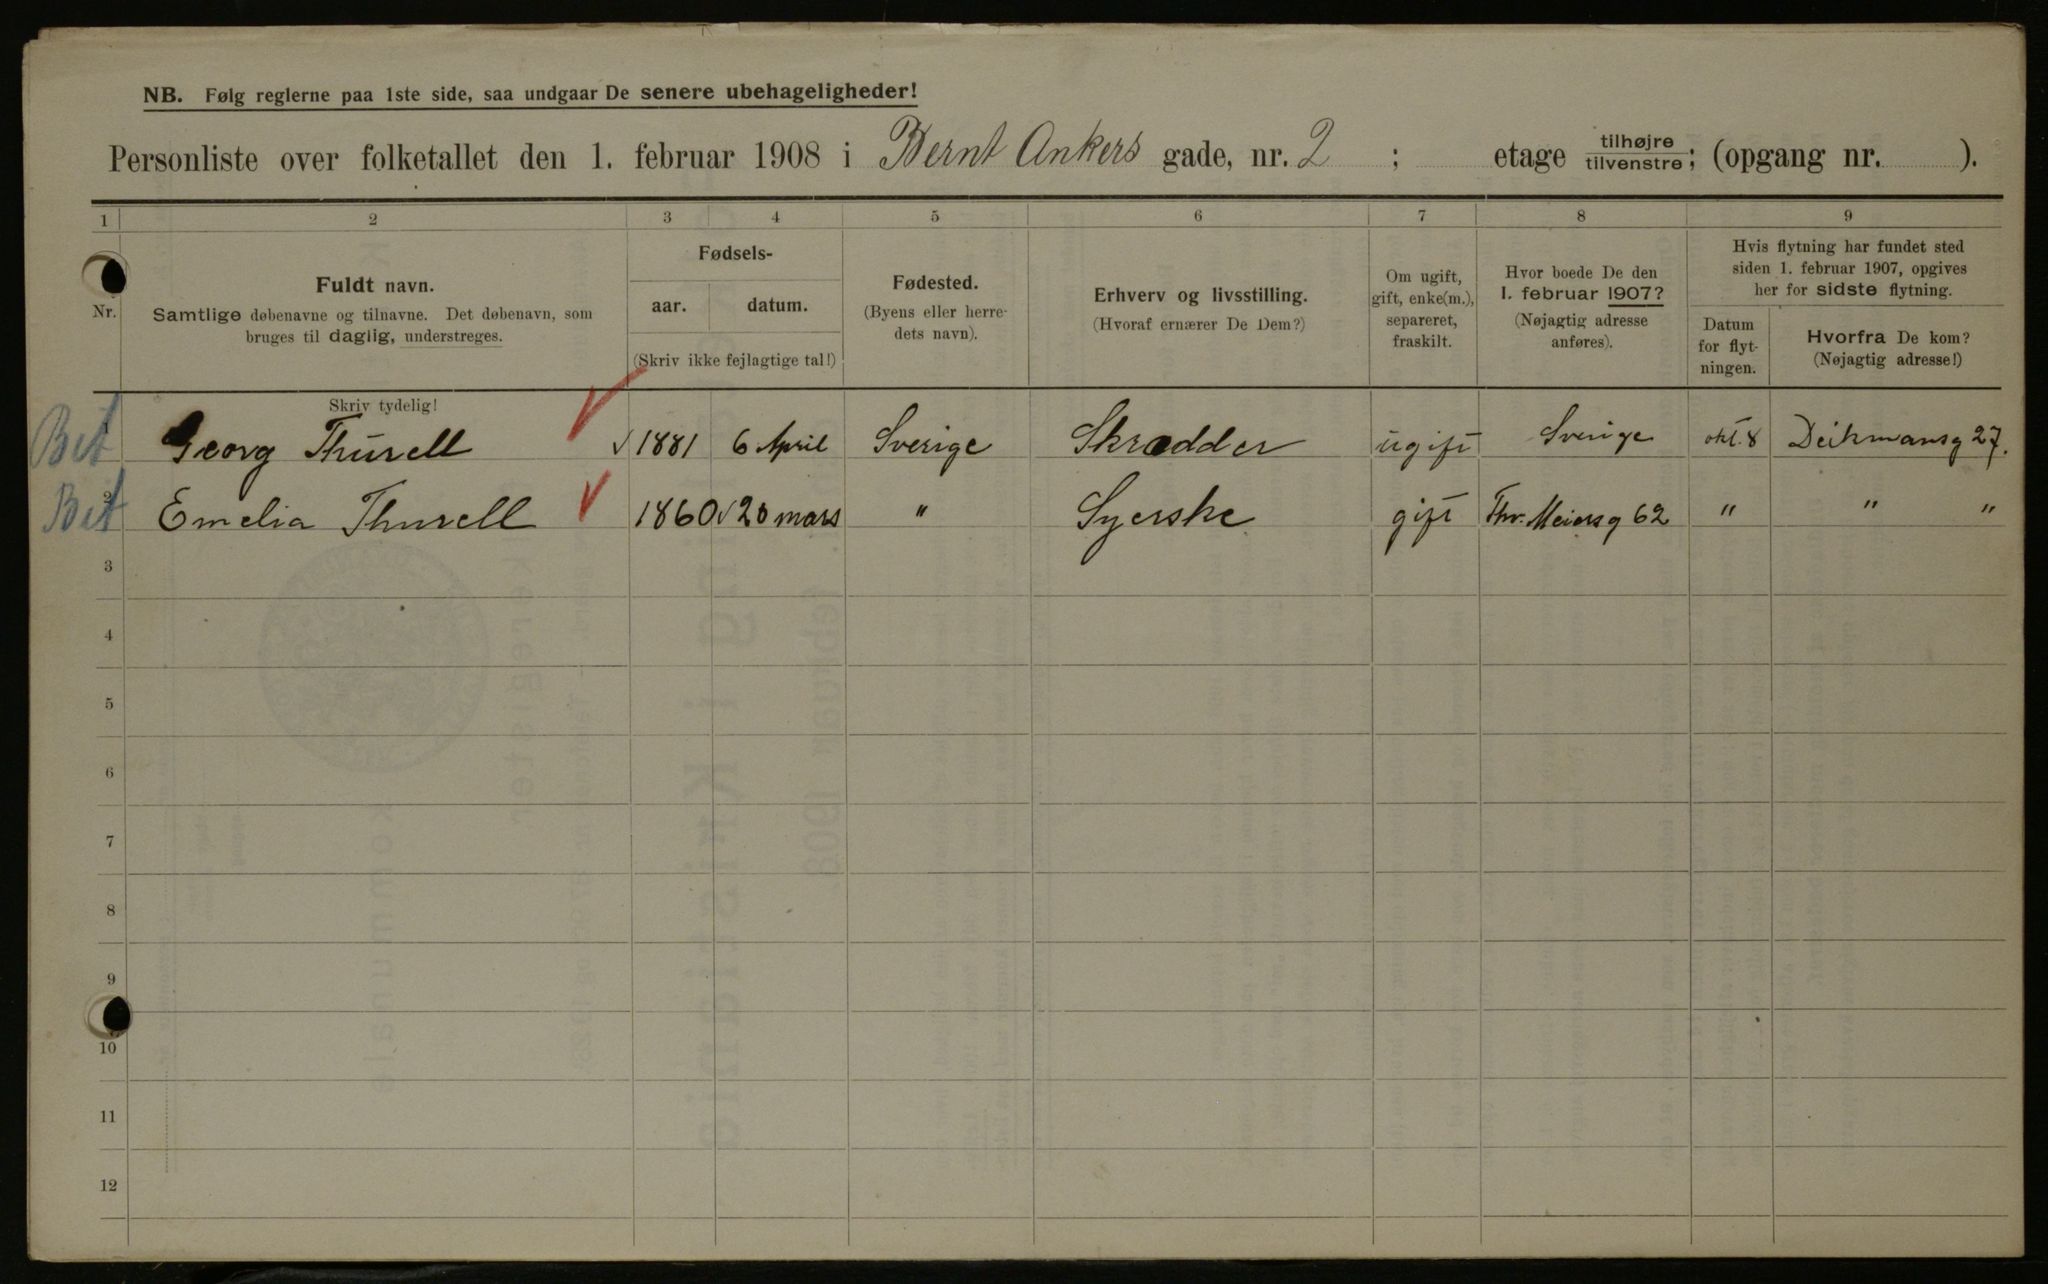 NB. Følg reglerne paa 1ste side, saa undgaar De senere ubehageligheder!
Personliste over folketallet den 1. februar 1908 i Bernt Ankers gade, nr. 2 ; etage tilhøjre tilvenstre; (opgang nr. ).
1 2 3 4 5 6 7 8 9
Nr.
Fuldt navn.
Samtlige døbenavne og tilnavne. Det døbenavn, som
bruges til daglig, understreges.
Skriv tydelig!
Fødsels-
aar. datum.
(Skriv ikke fejlagtige tal!)
Fødested.
(Byens eller herre-
dets navn).
Erhverv og livsstilling.
(Hvoraf ernærer De Dem?)
Om ugift,
gift, enke(m.),
separeret,
fraskilt.
Hvor boede De den
1. februar 1907?
(Nøjagtig adresse
anføres).
Hvis flytning har fundet sted
siden 1. februar 1907, opgives
her for sidste flytning.
Datum
for flyt-
ningen.
Hvorfra De kom?
(Nøjagtig adresse!)
Bet 1 Georg Thurell 1881 6 April Sverige Skrædder ugift Sverige okt. 8 Deikmansg 27.
Bet 2 Emelia Thurell 1860 20 mars " Syerske gift Thv. Meiersg 62 " " "
3
4
5
6
7
8
9
10
11
12